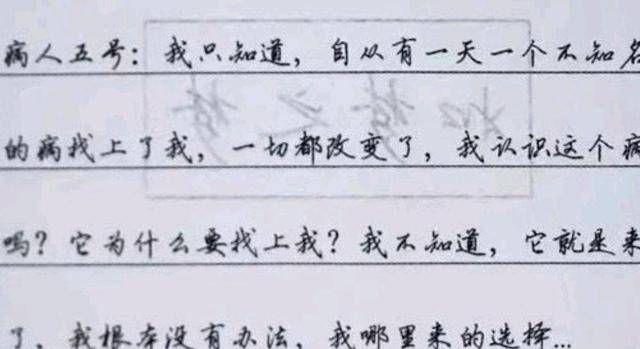 病人五号：我只知道，自从有一天一个不知名
的病找上了我，一切都改变了，我认识这个病
吗？它为什么要找上我？我不知道，它就是来
了，我根本没有办法，我哪里来的选择...